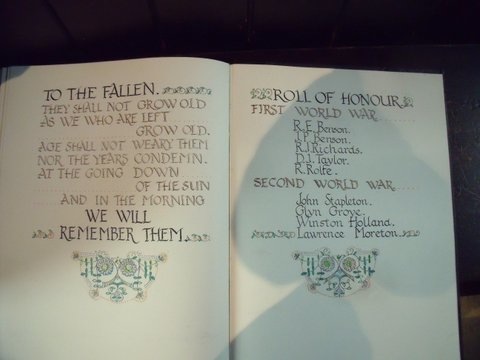 TO THE FALLEN.
THEY SHALL NOT GROW OLD
AS WE WHO ARE LEFT
GROW OLD.
AGE SHALL NOT WEARY THEM
NOR THE YEARS CONDEMN.
AT THE GOING DOWN
OF THE SUN
AND IN THE MORNING
WE WILL
REMEMBER THEM.
ROLL OF HONOUR
FIRST WORLD WAR
R.E. Benson.
J.P. Benson.
R.J. Richards.
D.J. Taylor.
R. Rolfe.
SECOND WORLD WAR
John Stapleton.
Glyn Grove.
Winston Holland.
Lawrence Moreton.